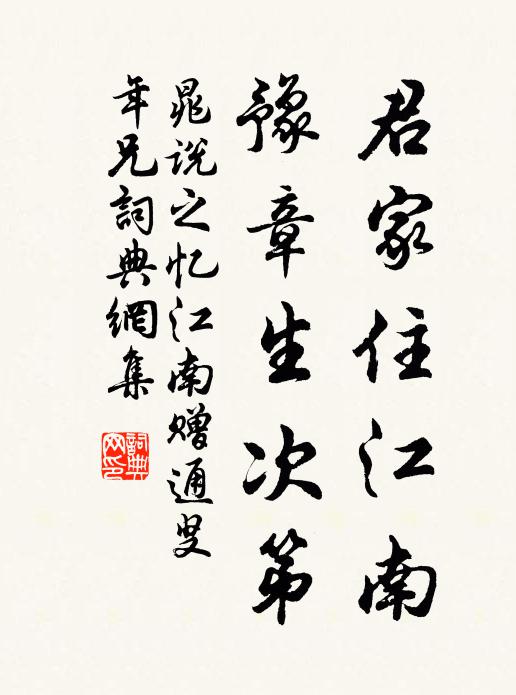 君家住江南
豫章生次第
晁说之忆江南赠通叟
年兄詞典網集
詞典网印